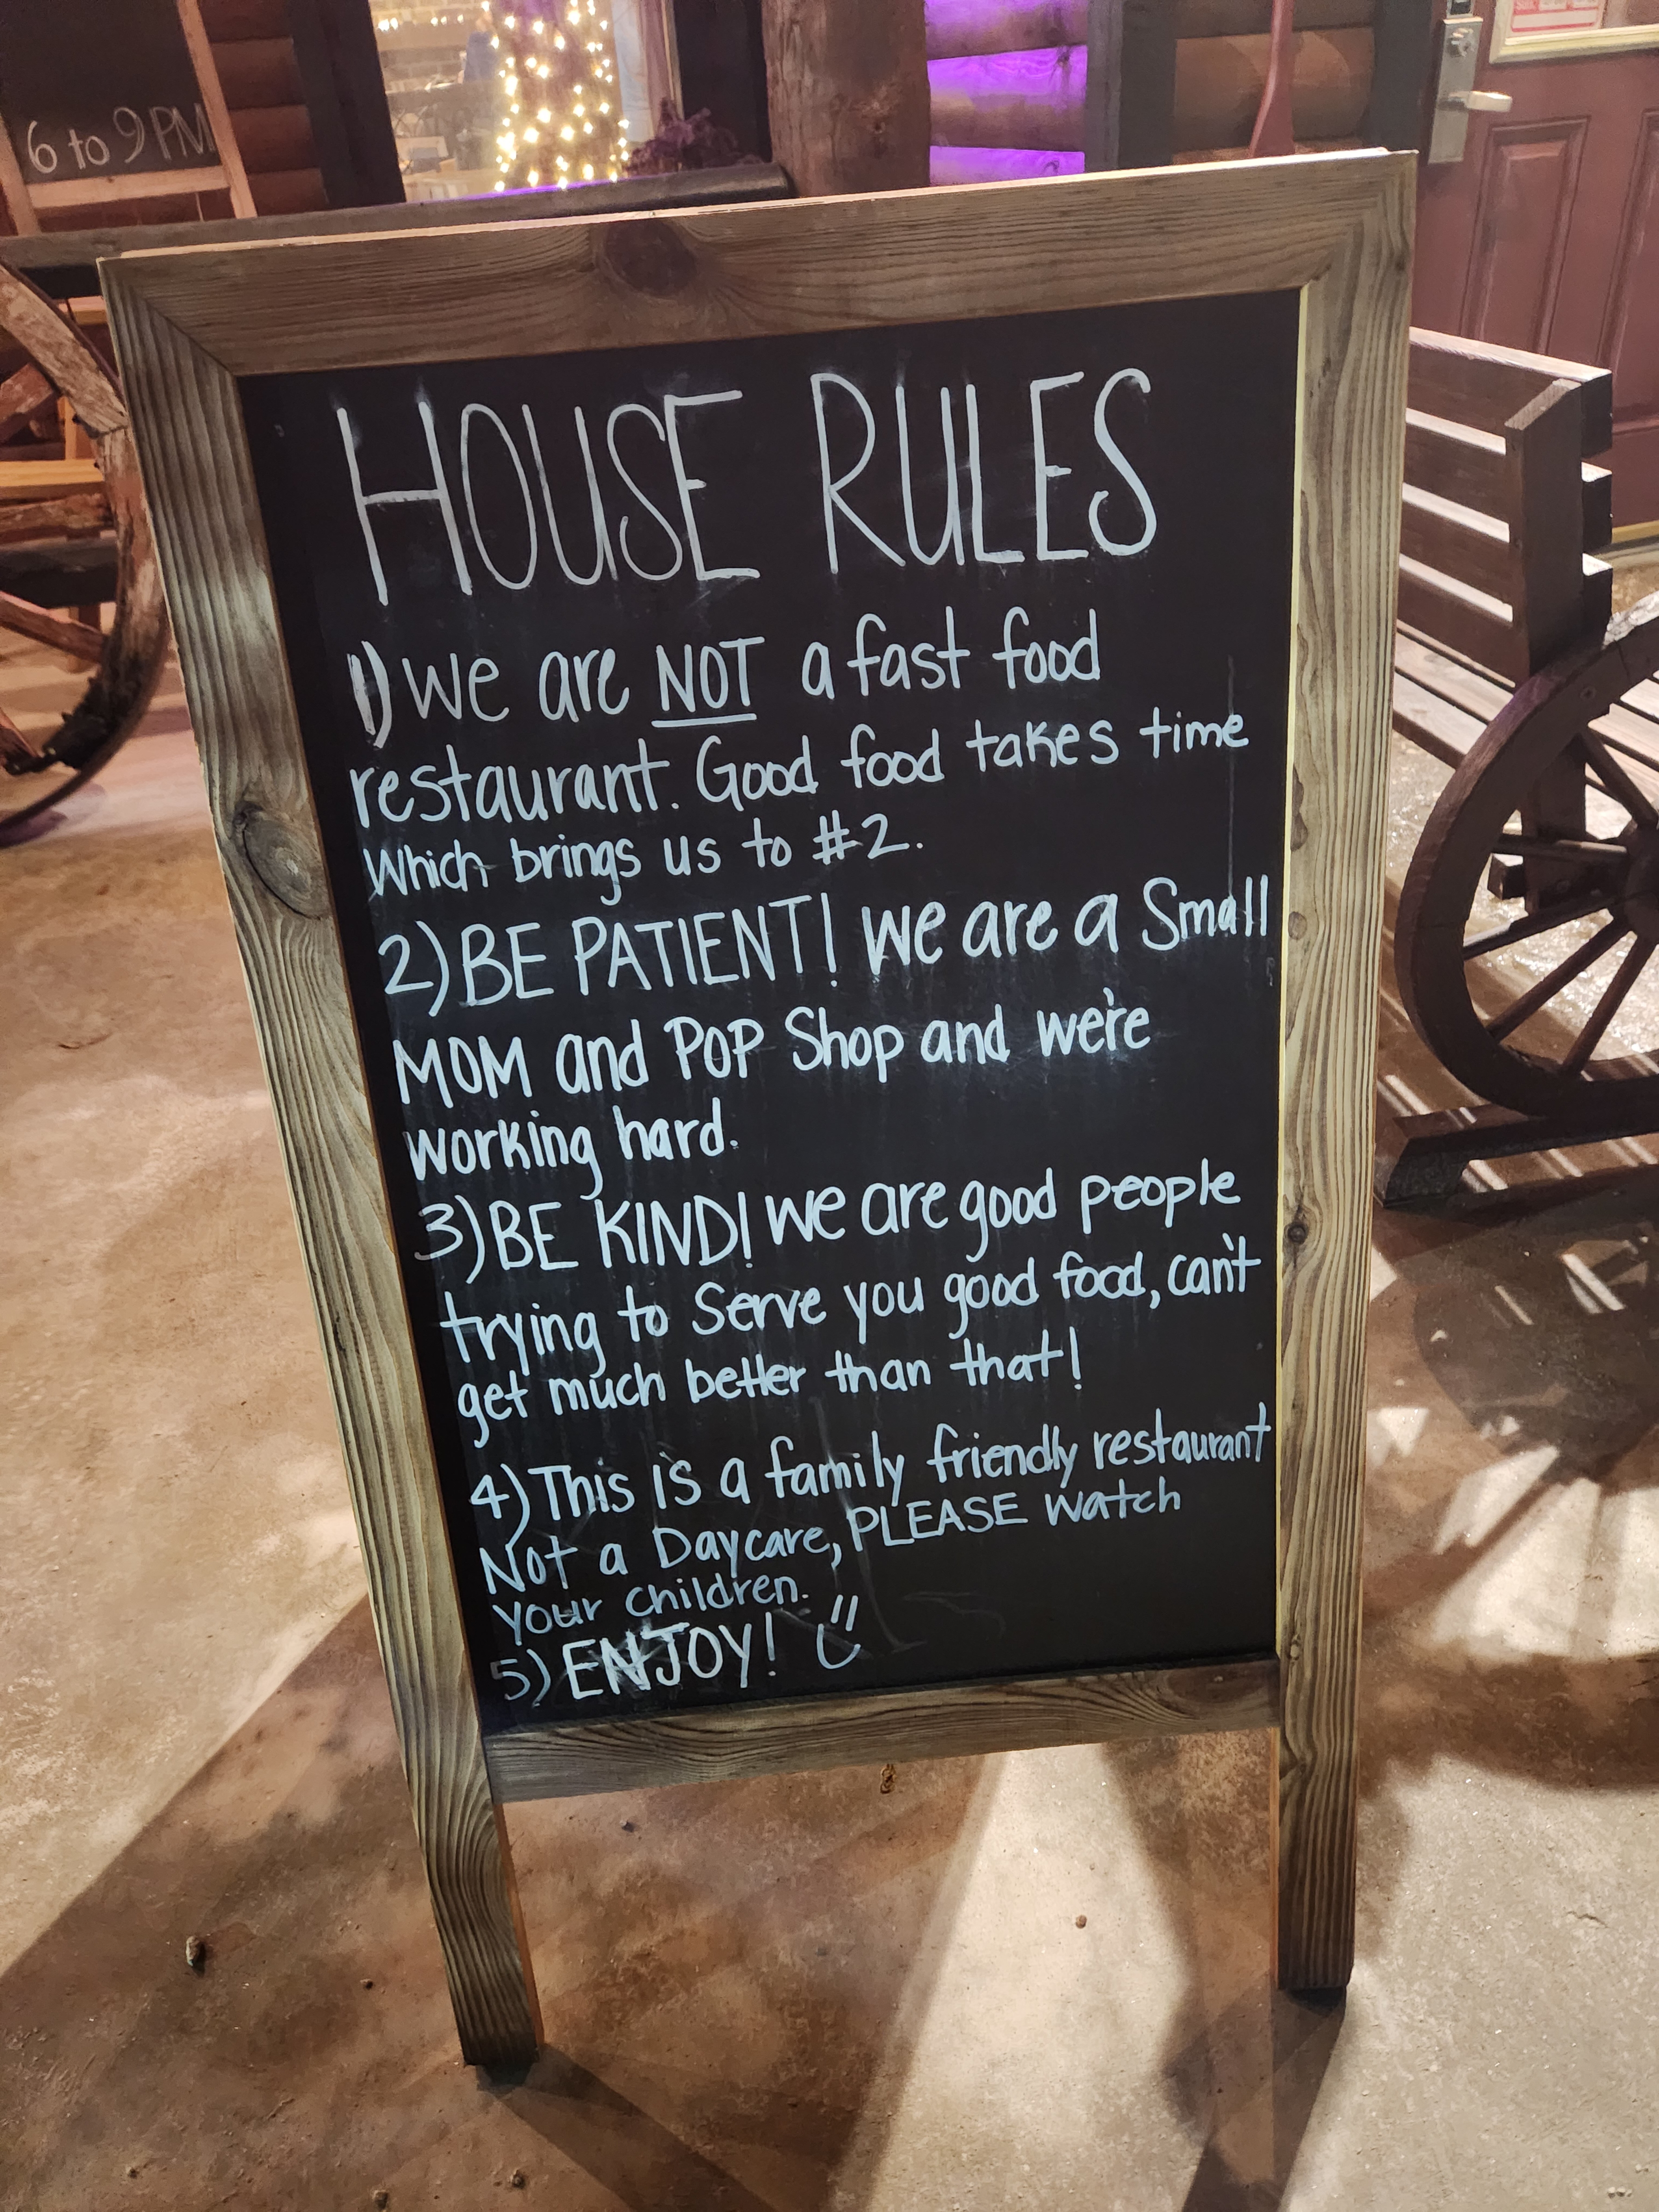 6 to 9 PM
HOUSE RULES
1) We are NOT a fast food
restaurant. Good food takes time
Which brings us to #2.
2) BE PATIENT! We are a Small
MOM and POP Shop and we're
working hard.
3) BE KIND! We are good people
trying to Serve you good food, can't
get much better than that!
4) This is a family friendly restaurant
Not a Daycare, PLEASE Watch
your children.
5) ENJOY!